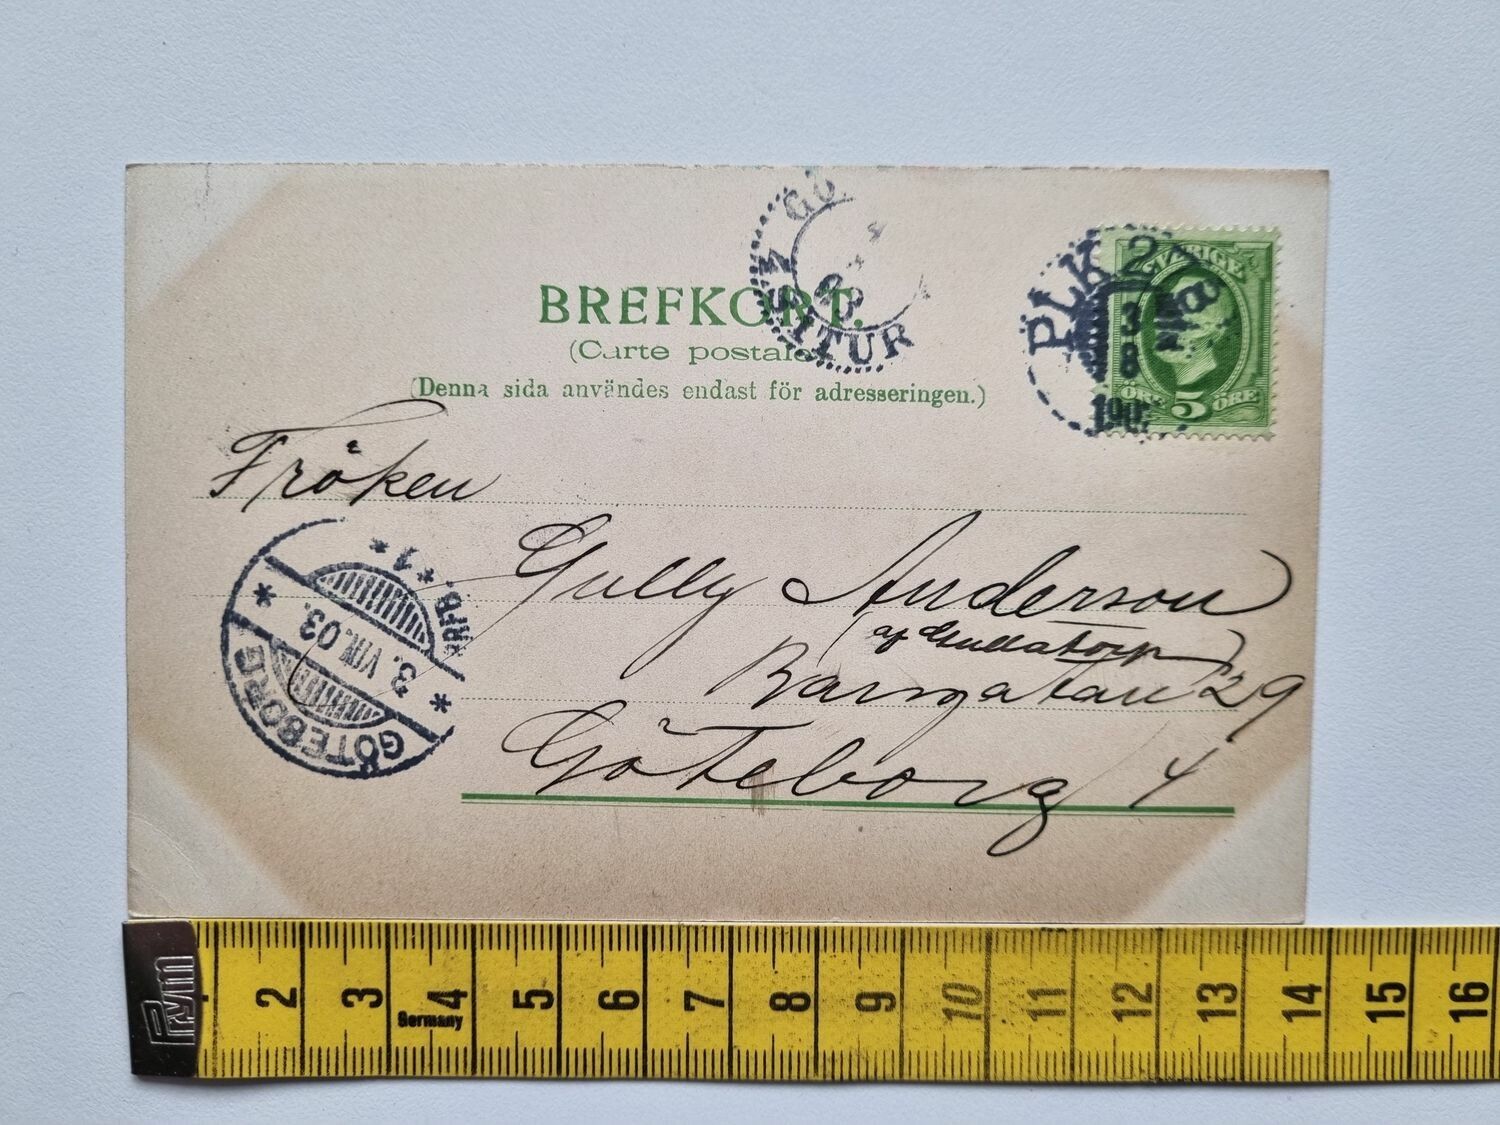 BREFKORT.
(Carte postale)
(Denna sida användes endast för adresseringen.)
SVERIGE
5
ÖRE ÖRE
PLK 2
3
8
190
GÖ
03
TUR
Fröken
Gully Anderson
(af
Barngatan 29
Göteborg 4
GÖTEBORG
* 3. VIII. 03. *
*1*
Prym
2 3 4 5 6 7 8 9 10 11 12 13 14 15 16
Germany